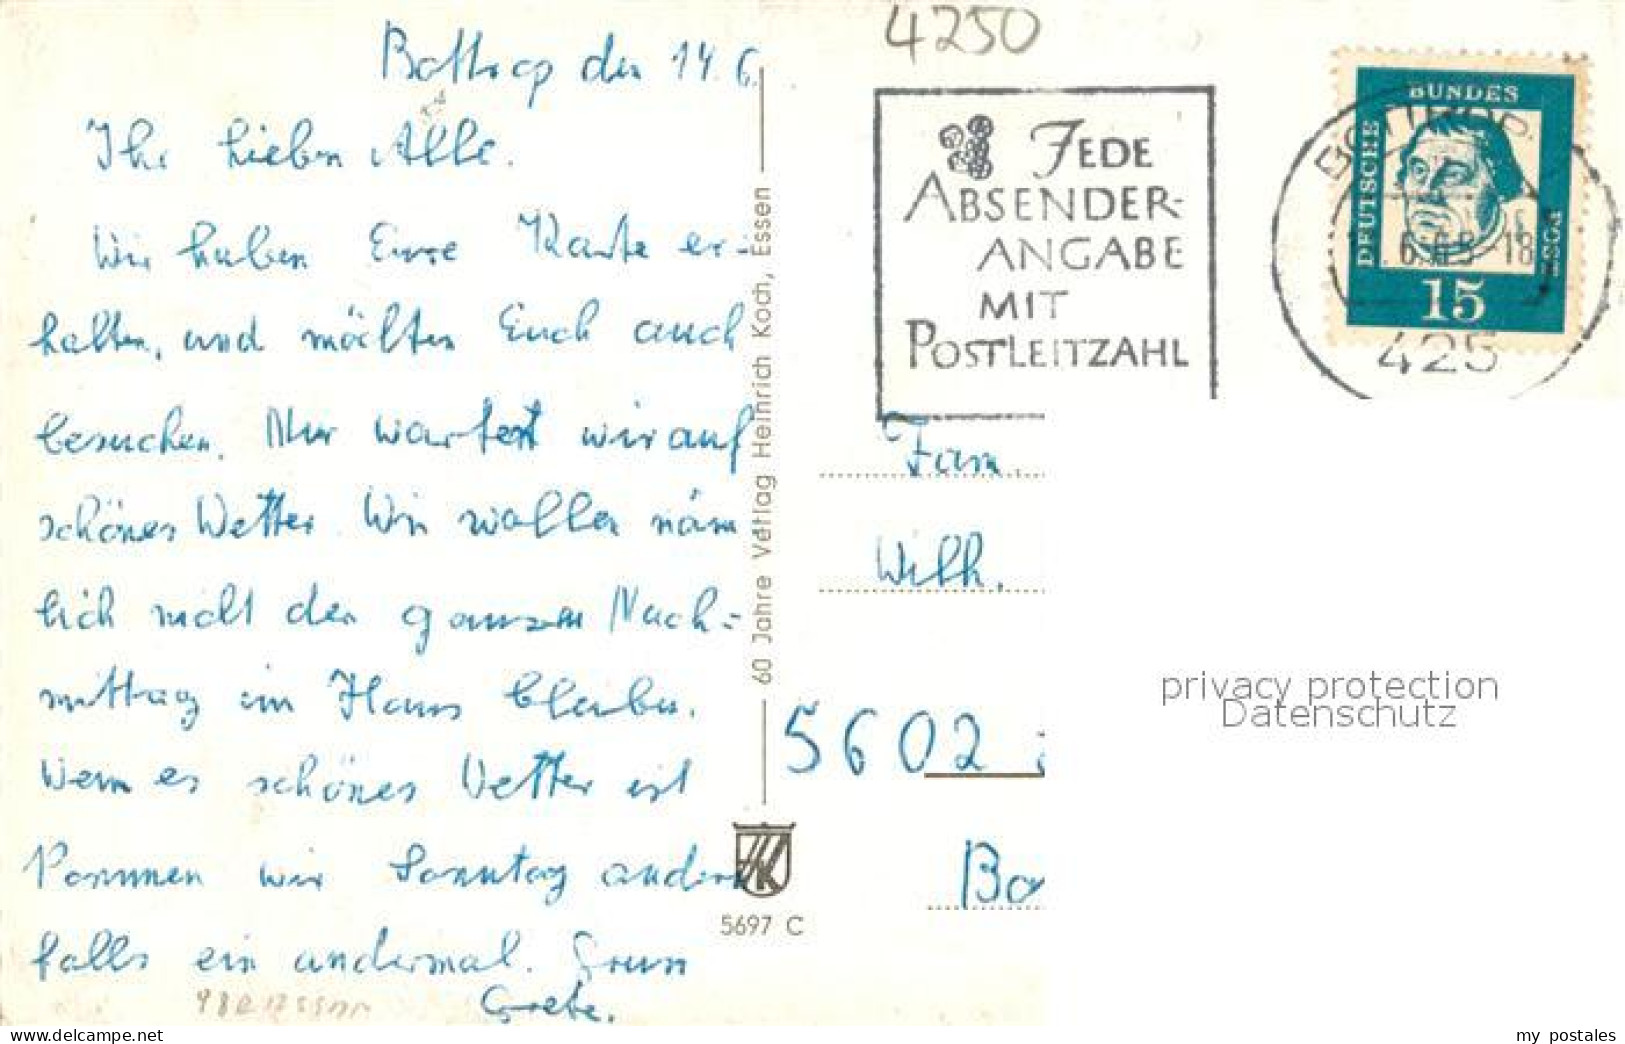 Bottrop den 14.6.
Ihr lieben Alle.
Wir haben Eure Karte er-
halten, und möchten Euch auch
besuchen. Nur warten wir auf
schönes Wetter. Wir wollen näm
lich nicht den ganzen Nach-
mittag im Haus bleiben.
Wenn es schönes Wetter ist
kommen wir Sonntag andern
falls ein andermal. Gruss
Grete.
60 Jahre Verlag Heinrich Koch, Essen
HK
5697 C
4250
JEDE
ABSENDER-
ANGABE
MIT
POSTLEITZAHL
BOTTROP
6.65-18
425
DEUTSCHE
BUNDES
POST
15
Fam.
Wilh.
5602
privacy protection
Datenschutz
my postales